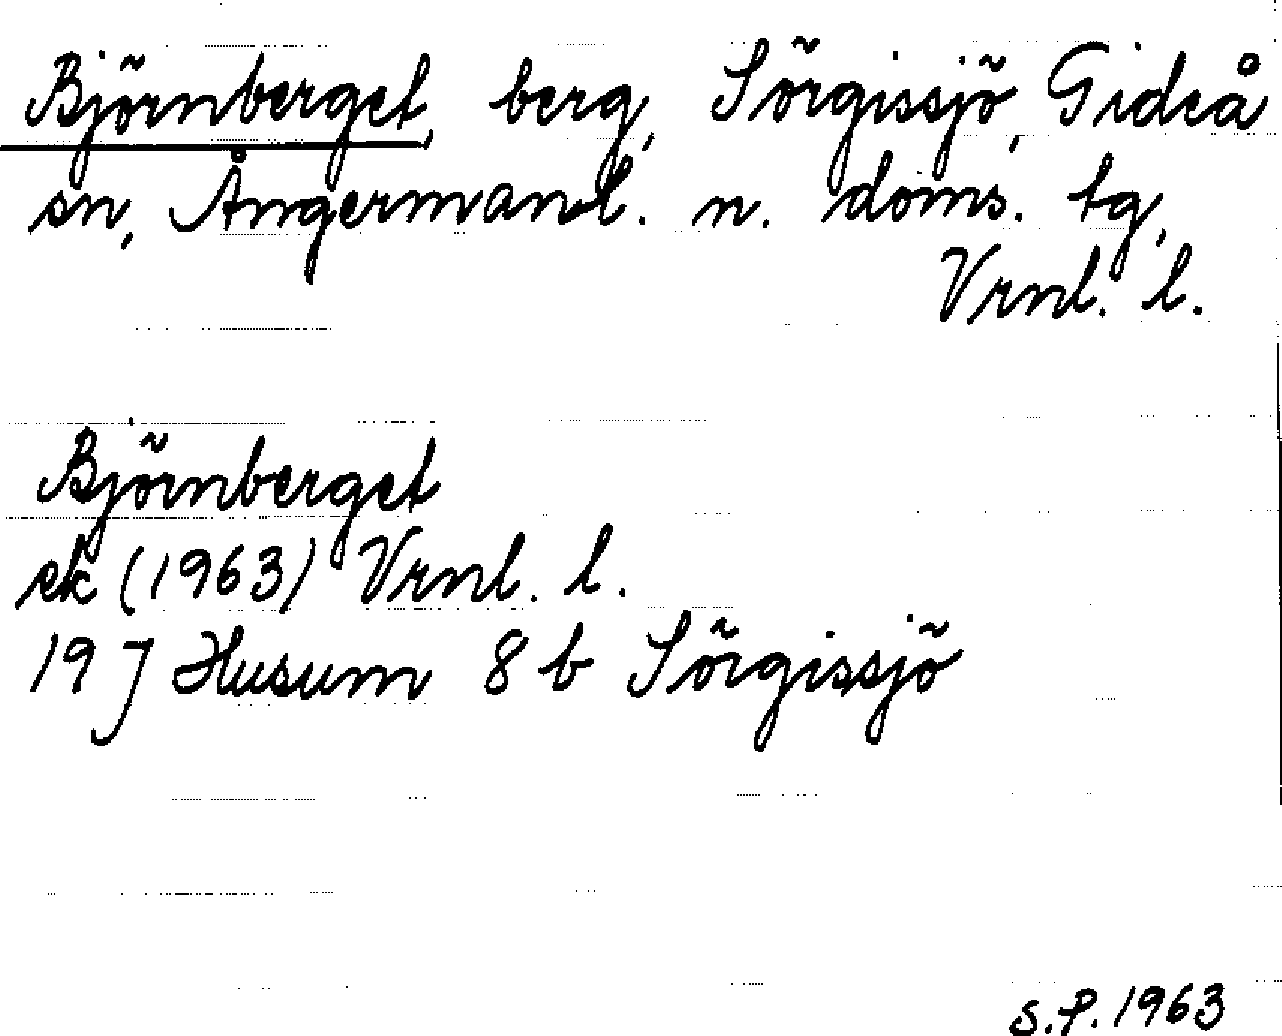 Björnberget, berg, Sörgissjö, Gideå
sn, Ångermanl. n. doms. tg,
Vrnl. l.
Björnberget
ek (1963) Vrnl. l.
19 J Husum 8 b Sörgissjö
S.P. 1963